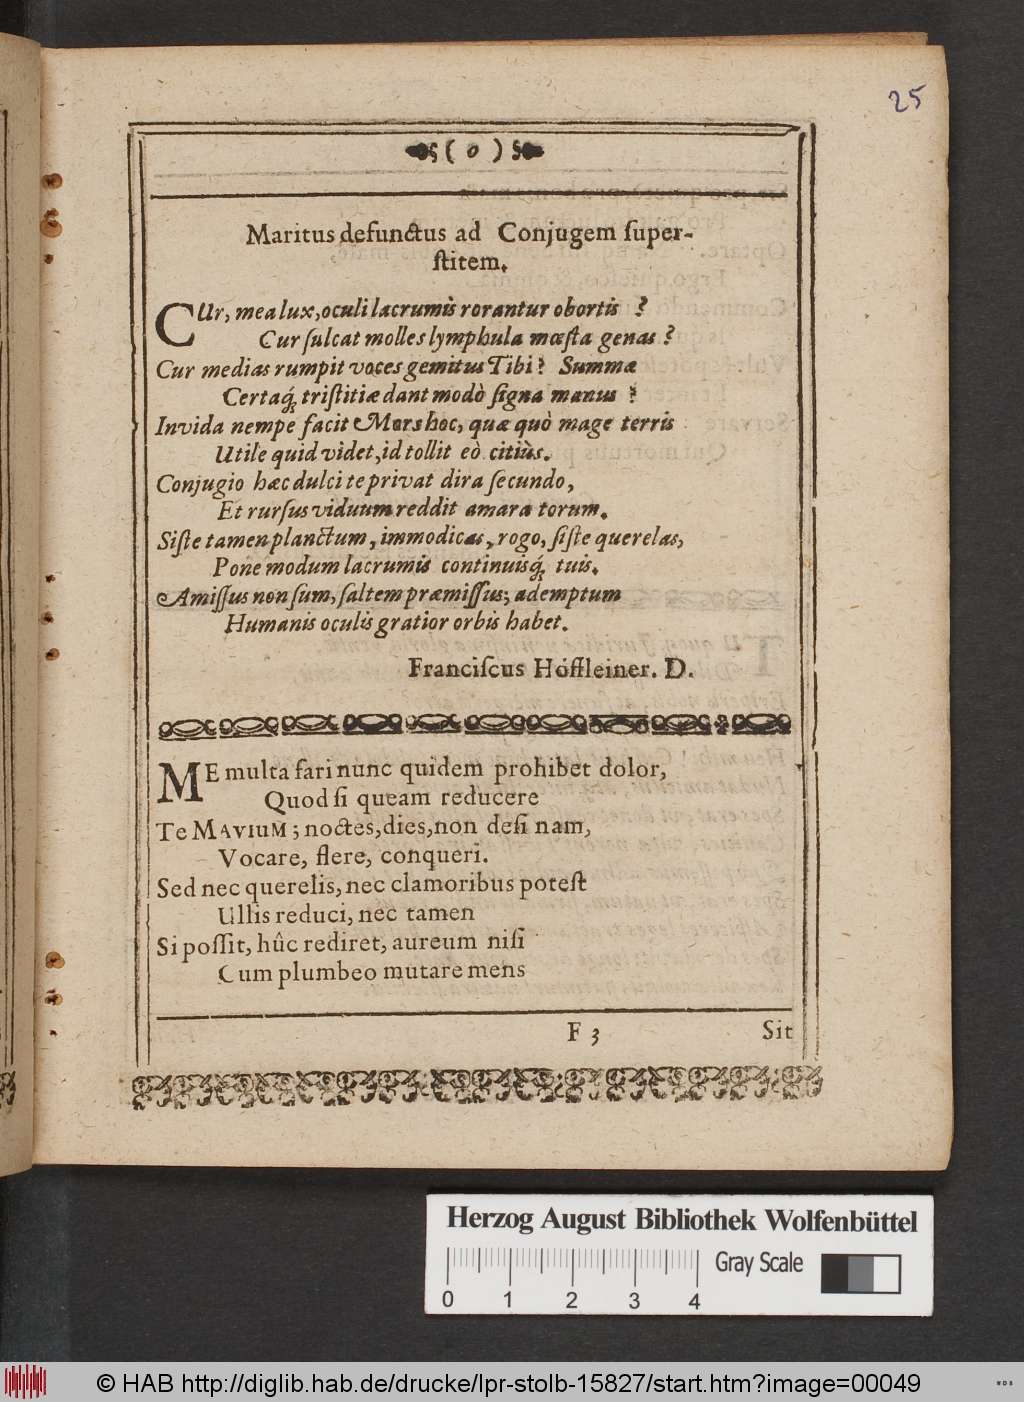 25
( o )
Maritus defunctus ad Conjugem ſuper-
ſtitem.
CUr, mea lux, oculi lacrumis rorantur obortis ?
Cur ſulcat molles lymphula mœſta genas ?
Cur medias rumpit voces gemitus Tibi? Summæ
Certaq́; triſtitiæ dant modò ſigna manus ?
Invida nempe facit Mors hoc, quæ quò mage terris
Utile quid videt, id tollit eò citiùs.
Conjugio hæc dulci te privat dira ſecundo,
Et rurſus viduum reddit amara torum.
Siſte tamen planctum, immodicas, rogo, ſiſte querelas,
Pone modum lacrumis continuisq́; tuis.
Amiſſus non ſum, ſaltem præmiſſus; ademptum
Humanis oculis gratior orbis habet.
Franciſcus Höffleiner. D.
ME multa fari nunc quidem prohibet dolor,
Quod ſi queam reducere
Te MAVIUM; noctes, dies, non deſi nam,
Vocare, flere, conqueri.
Sed nec querelis, nec clamoribus poteſt
Ullis reduci, nec tamen
Si poſſit, hûc rediret, aureum niſi
Cum plumbeo mutare mens
F 3
Sit
Herzog August Bibliothek Wolfenbüttel
Gray Scale
0 1 2 3 4
© HAB http://diglib.hab.de/drucke/lpr-stolb-15827/start.htm?image=00049